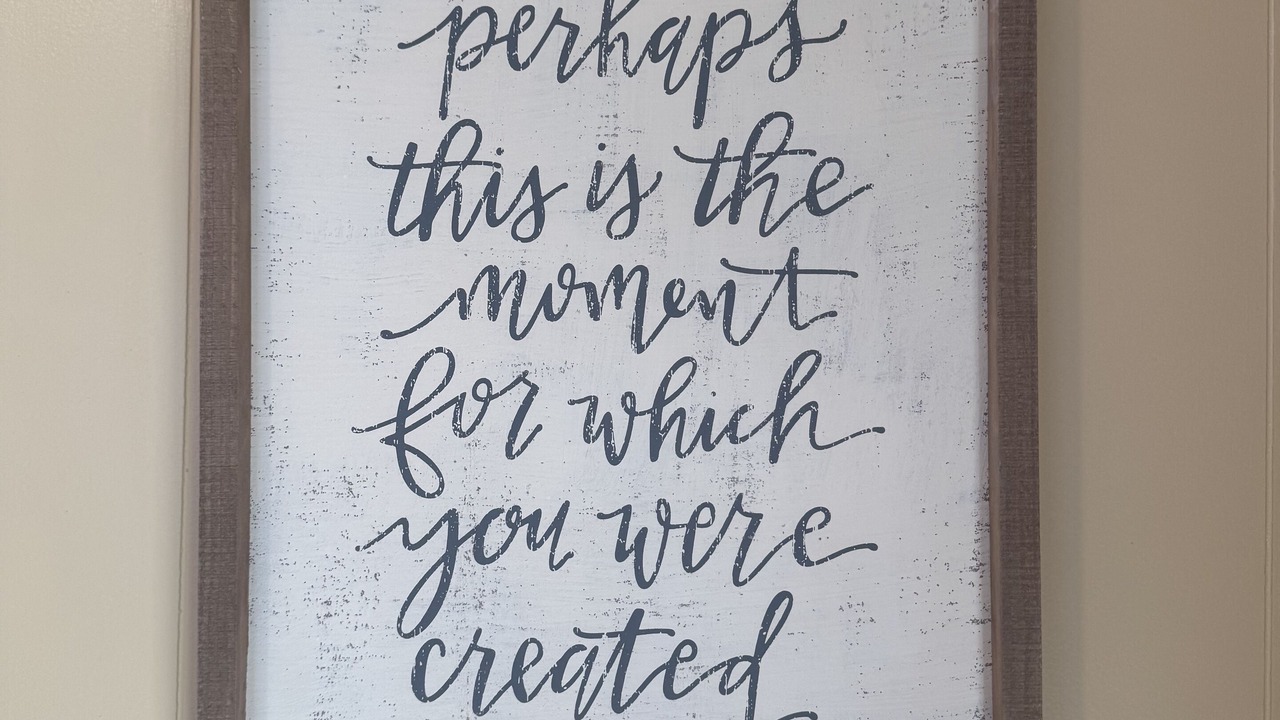 perhaps
this is the
moment
for which
you were
created